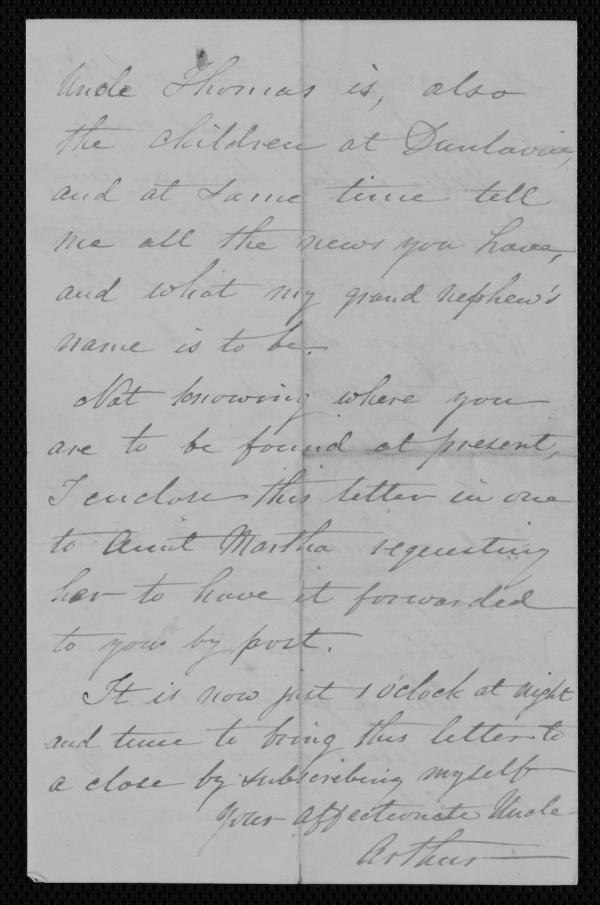 Uncle Thomas is, also
the children at Dunlavin,
and at same time tell
me all the news you have,
and what my grand nephew's
name is to be.
Not knowing where you
are to be found at present,
I enclose this letter in one
to Aunt Martha requesting
her to have it forwarded
to you by post.
It is now just 1 o'clock at night
and time to bring this letter to
a close by subscribing myself
your affectionate Uncle
Arthur